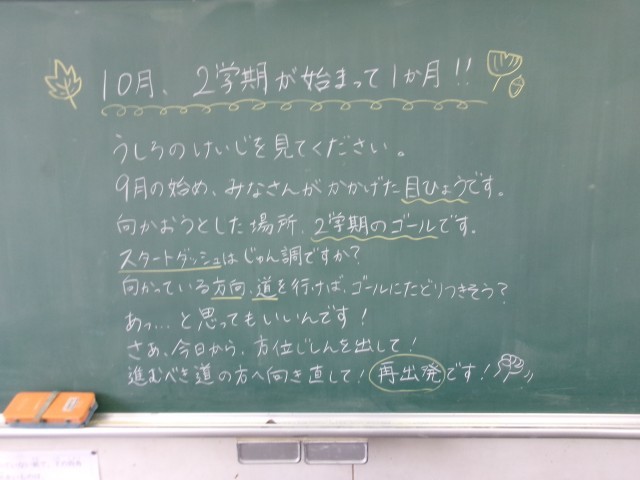 10月、2学期が始まって1か月!!
うしろのけいじを見てください。
9月の始め、みなさんがかかげた目ひょうです。
向かおうとした場所、2学期のゴールです。
スタートダッシュはじゅん調ですか?
向かっている方向、道を行けば、ゴールにたどりつきそう?
あっ…と思ってもいいんです!
さあ、今日から、方位じしんを出して!
進むべき道の方へ向き直して!再出発です!